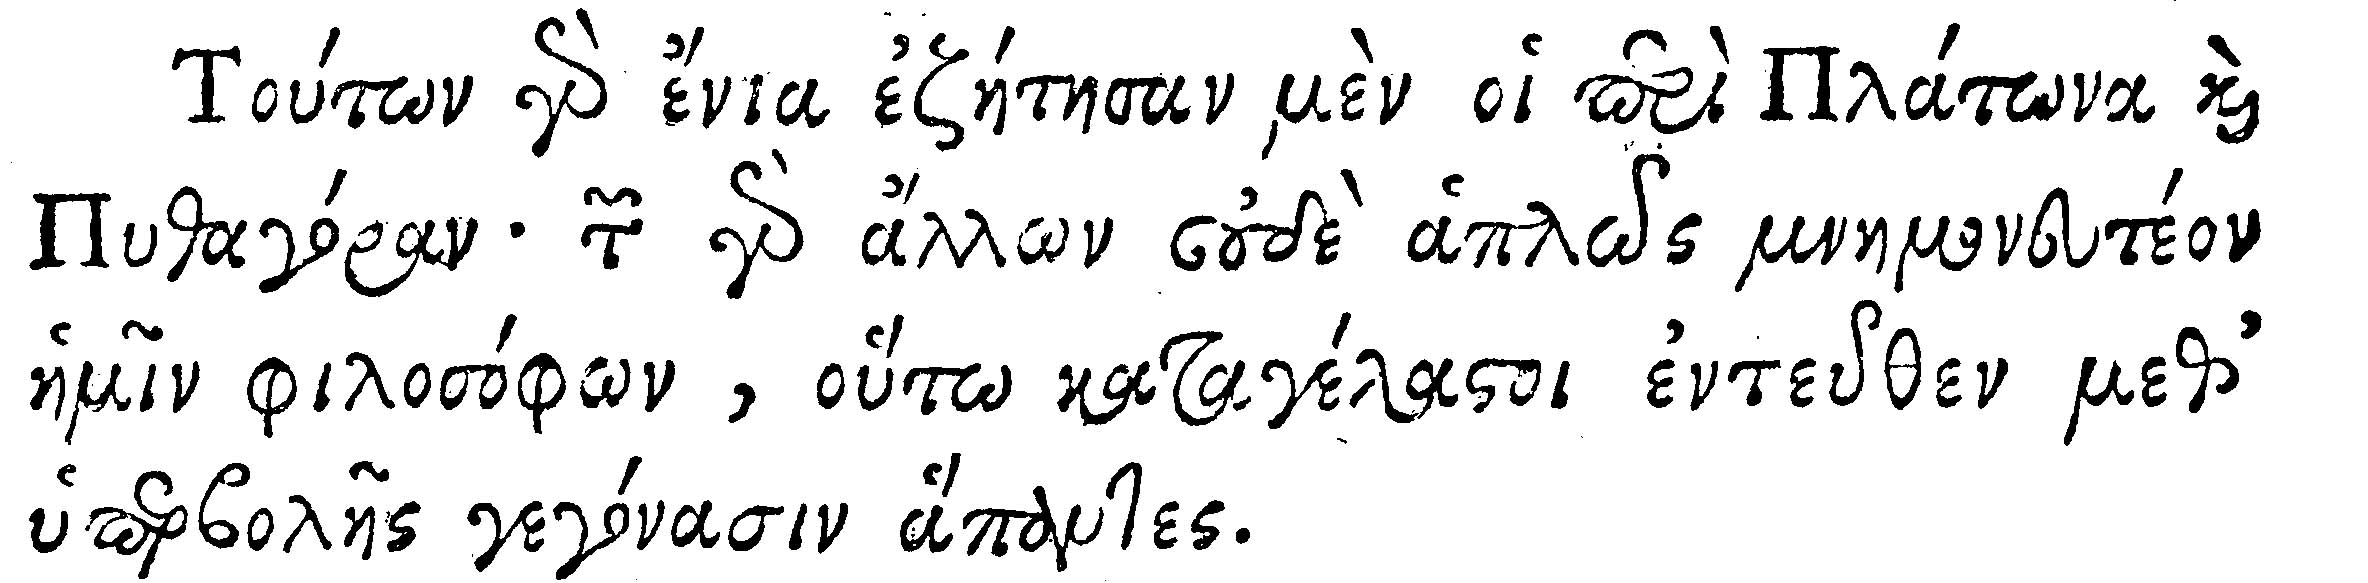 Τούτων γὰρ ἔνια ἐζήτησαν μὲν οἱ περὶ Πλάτωνα καὶ
Πυθαγόραν· τῶν γὰρ ἄλλων οὐδὲ ἁπλῶς μνημονευτέον
ἡμῖν φιλοσόφων, οὕτω καταγέλαστοι ἐντεῦθεν μεθ’
ὑπερβολῆς γεγόνασιν ἅπαντες.